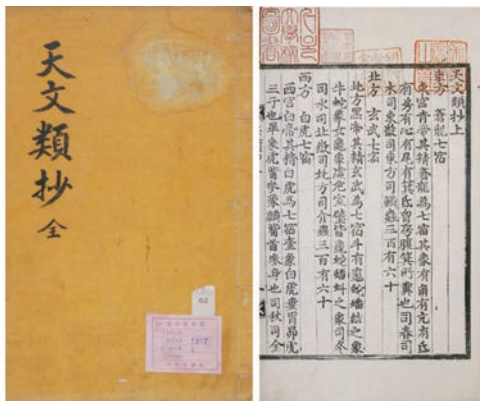 天文類抄 全
62
天文類抄上
東方 蒼龍七宿
東宮青帝其精蒼龍為七宿其象有角有亢有氐
有房有心有尾有箕氐胷房腹箕所糞也司春司
木司東嶽司東方司鱗蟲三百有六十
北方 玄武七宿
北方黑帝其精玄武為七宿斗有龍蛇蟠結之象
牛蛇象女龜象虛危室壁皆龜蛇蟠虯之象司冬
司水司北嶽司北方司介蟲三百有六十
西方 白虎七宿
西宮白帝其精白虎為七宿奎象白虎婁胃昴虎
三子也畢象虎觜參象麟觜首參身也司秋司金